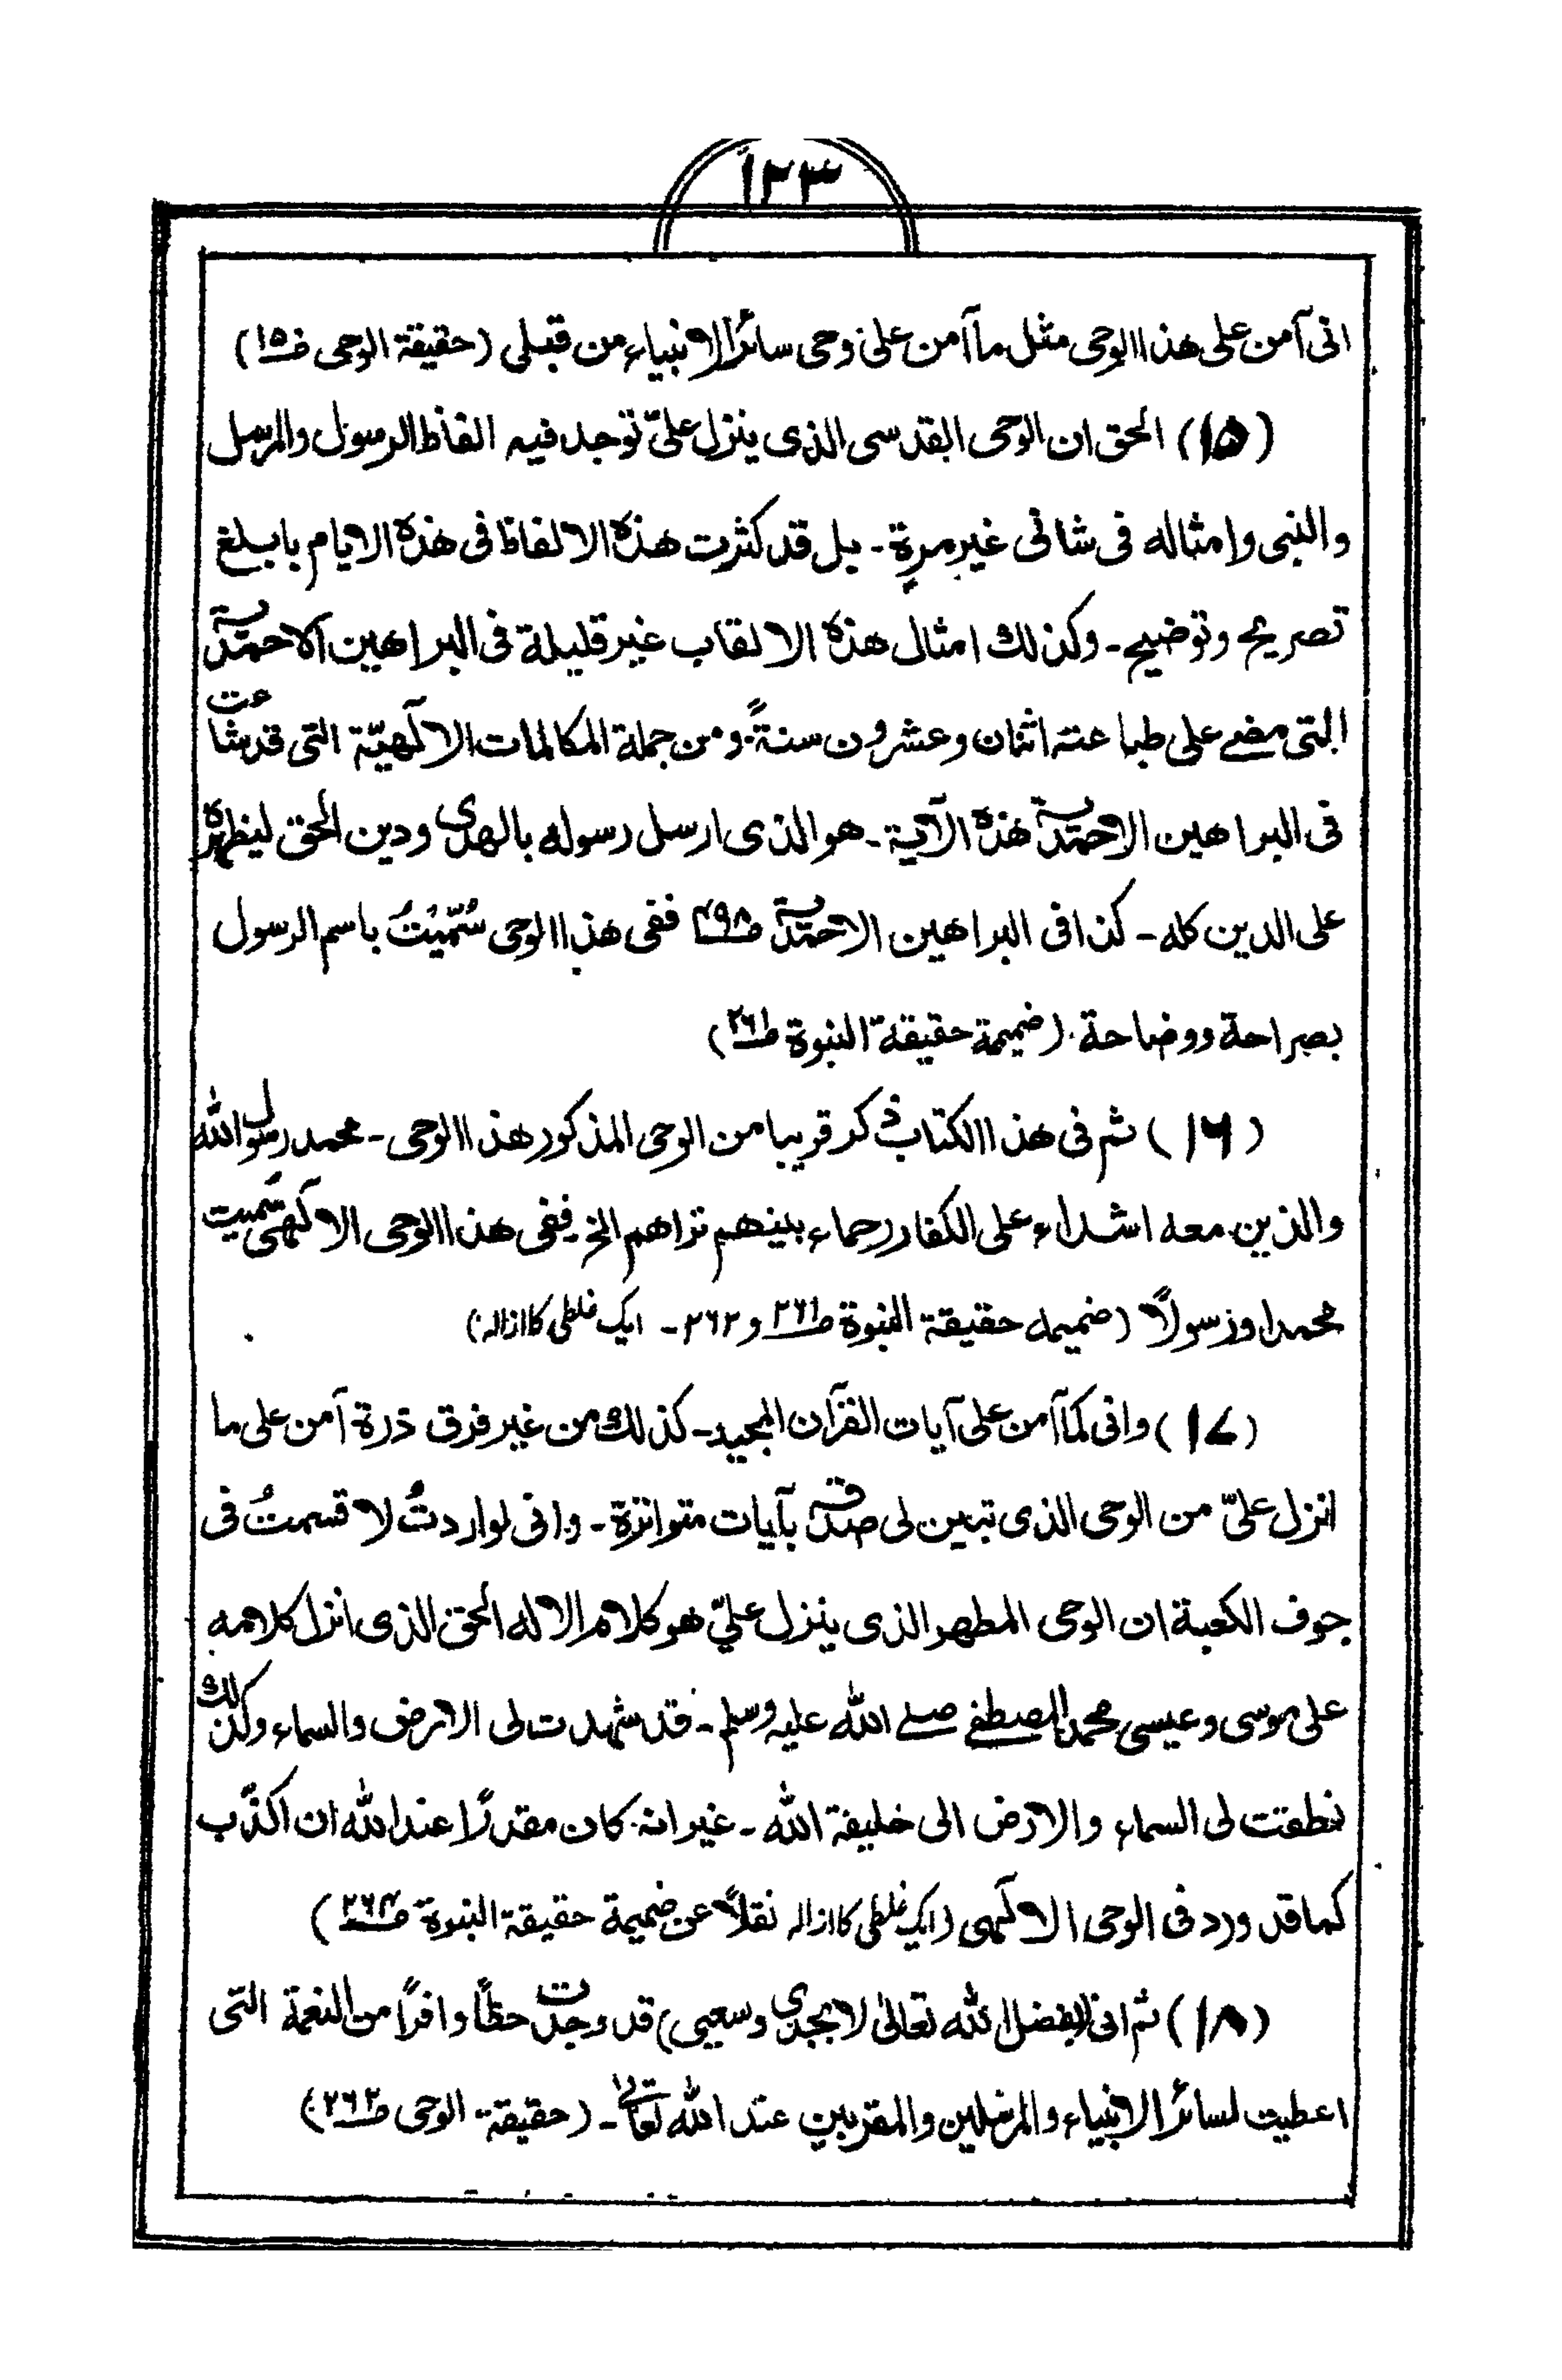 ١٢٣
انی آمن علی هذا الوحی مثل ما آمن علی وحی سائر الانبیاء من قبلی (حقیقة الوحی ص١٥)
(١٥) الحق ان الوحی القدسی الذی ینزل علیّ توجد فیه الفاظ الرسول والمرسل
والنبی وامثاله فی شانی غیر مرة - بل قد کثرت هذه الالفاظ فی هذه الایام بابلغ
تصریح وتوضیح - وکذلك امثال هذه الالقاب غیر قلیلة فی البراهین الاحمدیة
التی مضے علی طباعته اثنان وعشرون سنةً ومن جملة المکالمات الالٰهیّة التی قد شاعت
فی البراهین الاحمدیة هذه الآیة - هو الذی ارسل رسوله بالهدی ودین الحق لیظهره
علی الدین کله - کذا فی البراهین الاحمدیة ص٤٩٨ ففی هذا الوحی سُمّیتُ باسم الرسول
بصراحة ووضاحة (ضمیمة حقیقة النبوة ص٢٦١)
(١٦) ثم فی هذا الکتاب ذکر قریبا من الوحی المذکور هذا الوحی - محمد رسول الله
والذین معه اشداء علی الکفار رحماء بینهم تراهم الخ ففی هذا الوحی الالٰهی سُمیت
محمدا ورسولاً (ضمیمه حقیقة النبوة ص٢٦١ و ٢٦٢ - ایک غلطی کا ازاله)
(١٧) وانی کما آمن علی آیات القرآن المجید - کذلك من غیر فرق ذرة آمن علی ما
انزل علیّ من الوحی الذی تبین لی صدقه بآیات متواترة - وانی لو اردتُ لاقسمتُ فی
جوف الکعبة ان الوحی المطهر الذی ینزل علیّ هو کلام الاله الحق الذی انزل کلامه
علی موسی وعیسی محمد المصطفے صلے الله علیه وسلم - قد شهدت لی الارض والسماء وکذلك
نطقت لی السماء والارض انی خلیفة الله - غیر انه کان مقدرًا عند الله ان اکذّب
کما قد ورد فی الوحی الالٰهی (ایک غلطی کا ازاله نقلاً عن ضمیمة حقیقة النبوة ص٢٦٤)
(١٨) ثم انی (بفضل الله تعالیٰ لا بجدی وسعیی) قد وجدت حظاً وافراً من النعمة التی
اعطیت لسائر الانبیاء والمرسلین والمقربین عند الله تعالیٰ - (حقیقة الوحی ص٢٦٢)